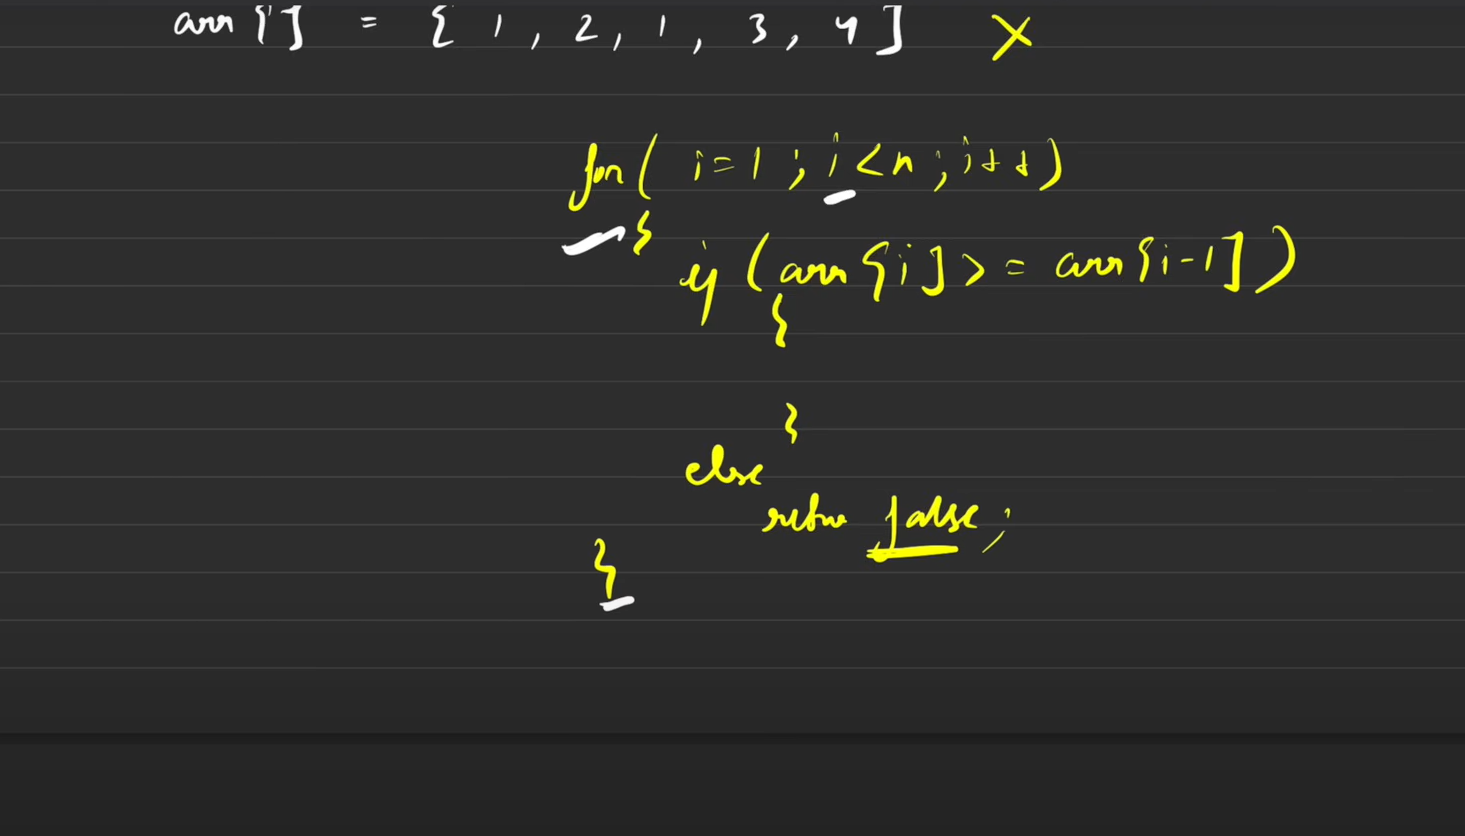 arr [] = [ 1 , 2 , 1 , 3 , 4 ] X
for ( i = 1 ; i < n ; i++ )
{
if ( arr [i] >= arr [i-1] )
{
}
else
return false ;
}